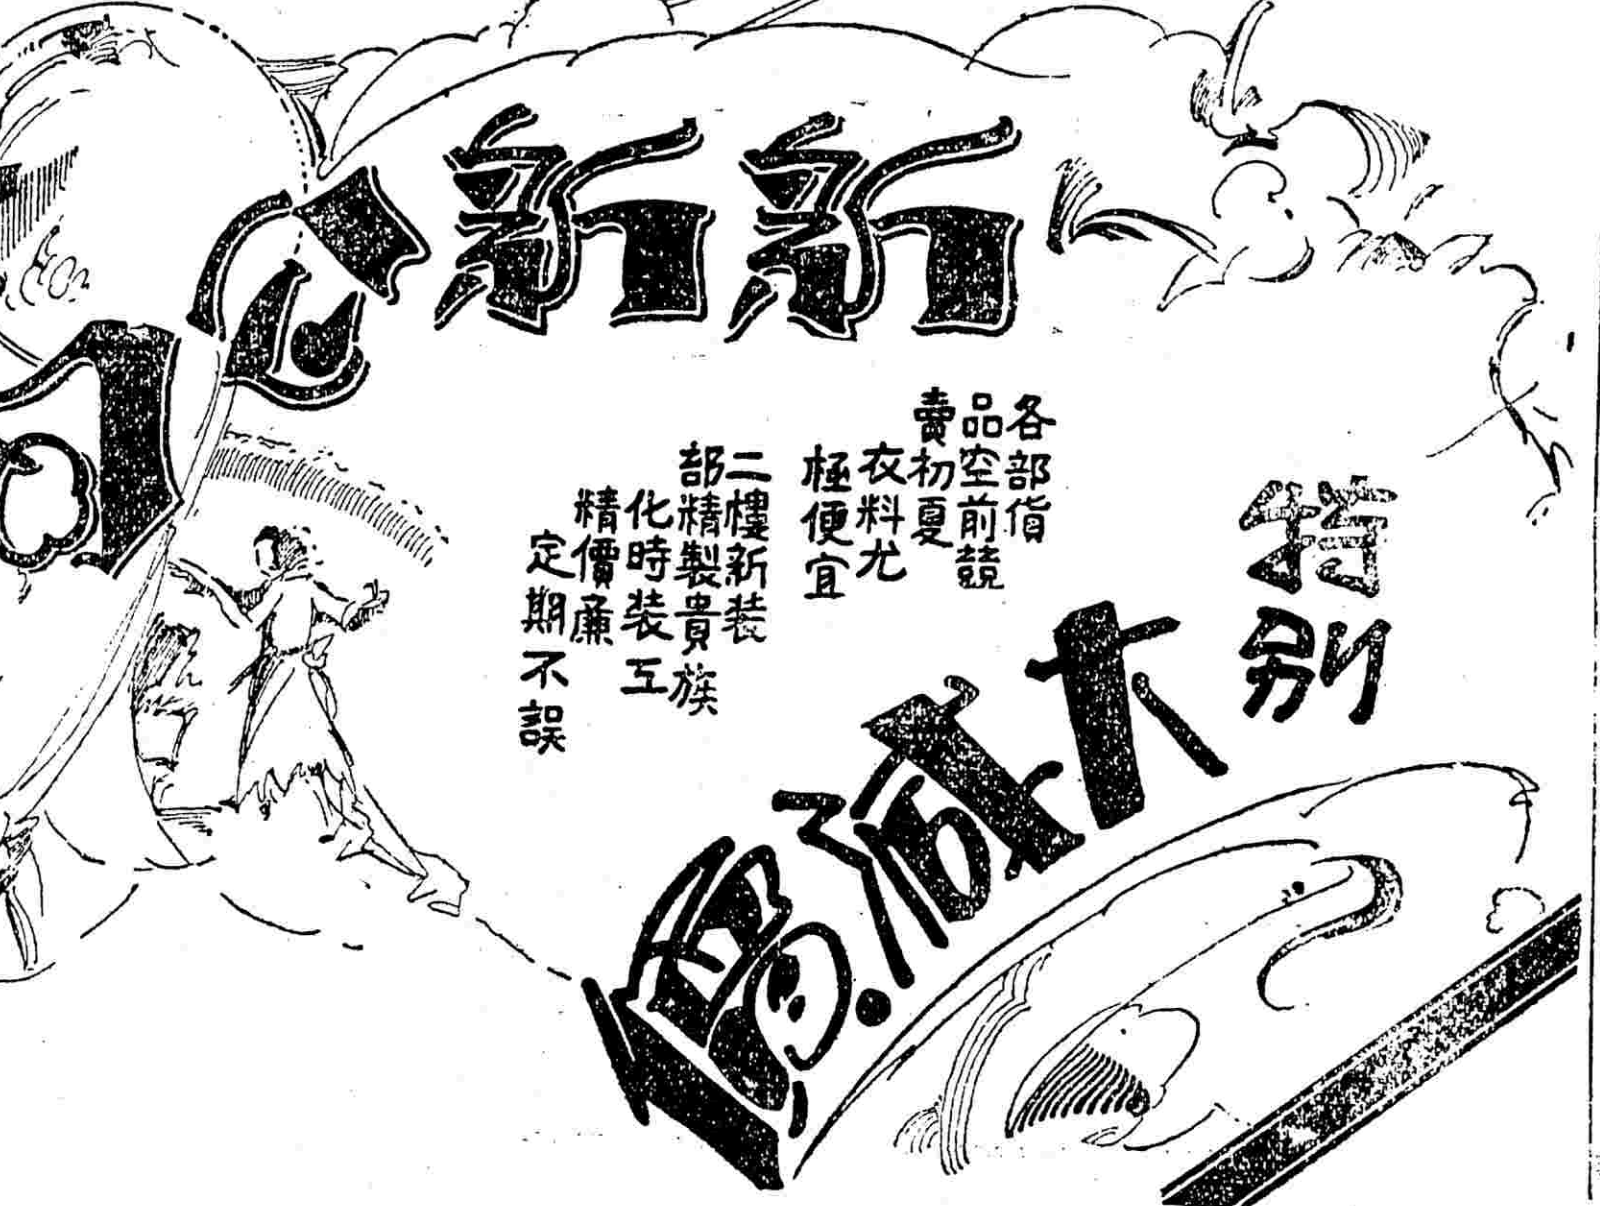 新新公司
特別
大減價
各部貨
品空前競
賣初夏
衣料尤
極便宜
二樓新裝
部精製貴族
化時裝工
精價廉
定期不誤